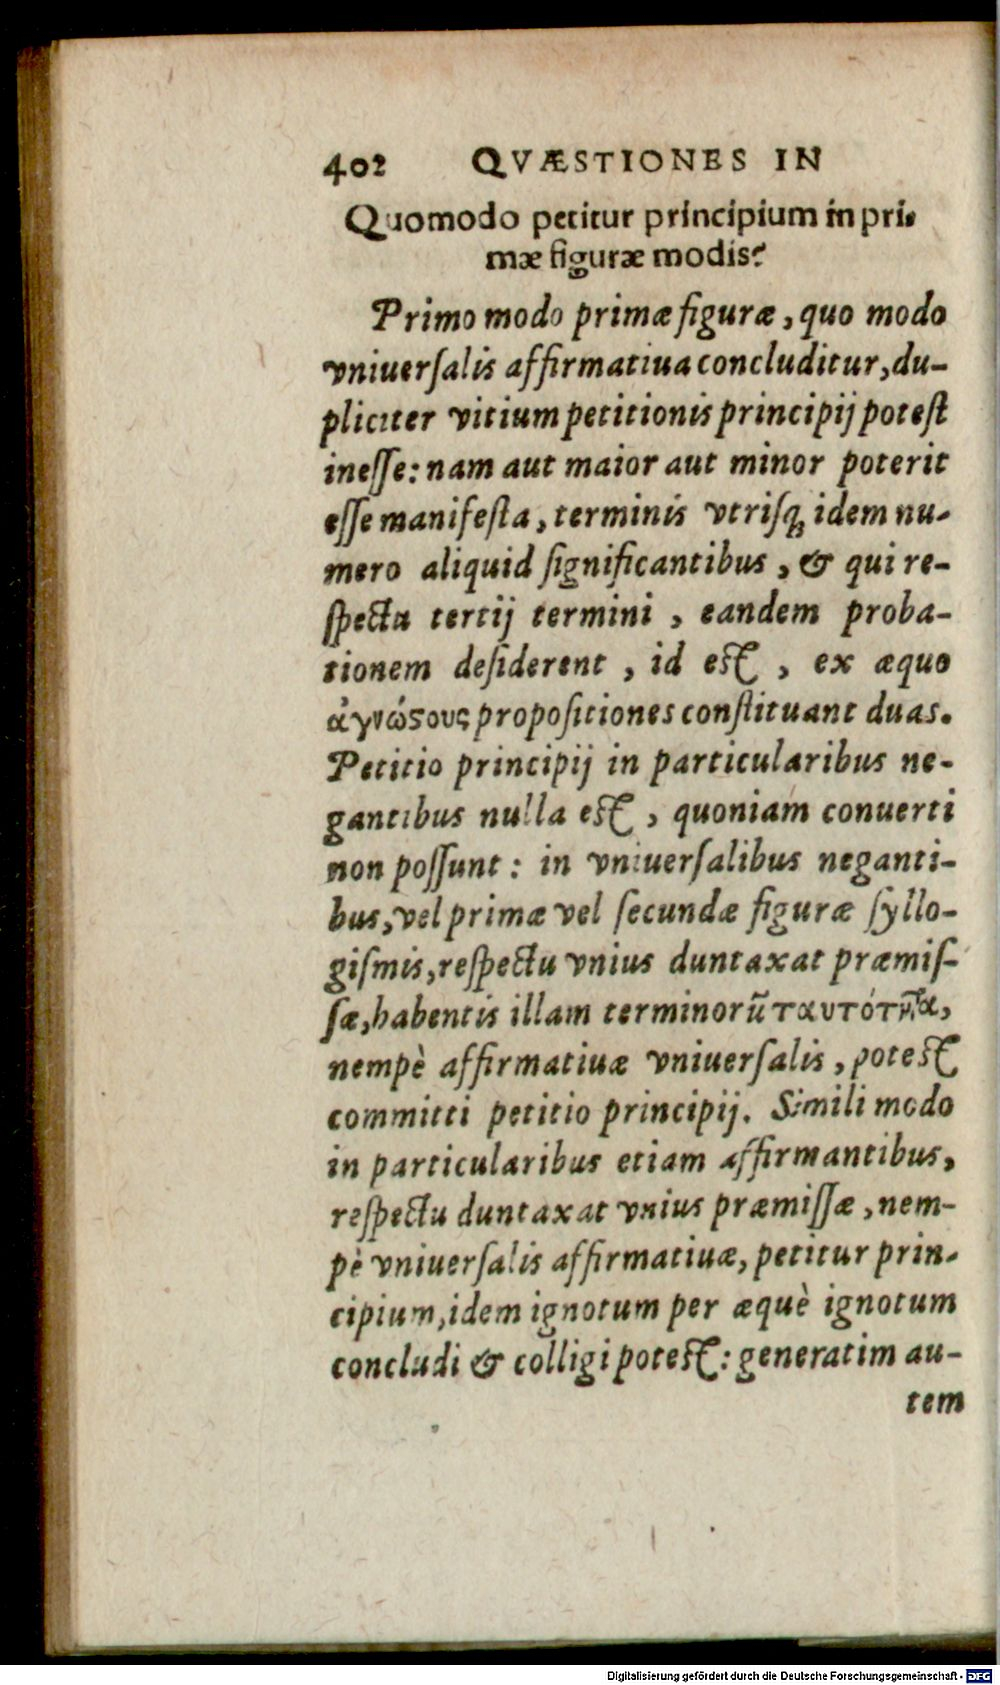 402 QVÆSTIONES IN
Quomodo petitur principium in pri-
mæ figuræ modis?
Primo modo primæ figuræ, quo modo
vniuersalis affirmatiua concluditur, du-
pliciter vitium petitionis principij potest
inesse: nam aut maior aut minor poterit
esse manifesta, terminis vtrisq; idem nu-
mero aliquid significantibus, & qui re-
spectu tertij termini, eandem proba-
tionem desiderent, id est, ex æquo
ἀγνώϛους propositiones constituant duas.
Petitio principij in particularibus ne-
gantibus nulla est, quoniam conuerti
non possunt: in vniuersalibus neganti-
bus, vel primæ vel secundæ figuræ syllo-
gismis, respectu vnius duntaxat præmis-
sæ, habentis illam terminorũ ταυτότητα,
nempè affirmatiuæ vniuersalis, potest
committi petitio principij. Simili modo
in particularibus etiam affirmantibus,
respectu duntaxat vnius præmissæ, nem-
pè vniuersalis affirmatiuæ, petitur prin-
cipium, idem ignotum per æquè ignotum
concludi & colligi potest: generatim au-
tem
Digitalisierung gefördert durch die Deutsche Forschungsgemeinschaft - DFG